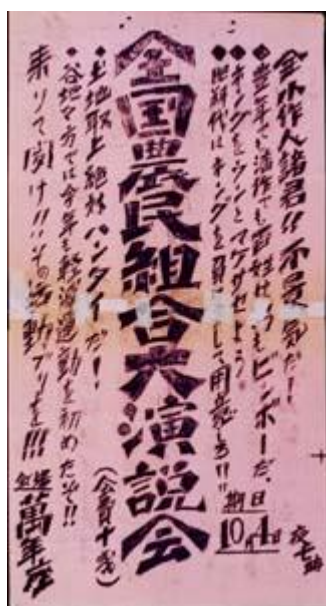 全小作人諸君!!不景気だ!
●豊年でも満作でも百姓はいつもビンボーだ、
●ネングをウンとマケサセよう。
●肥料代はネングを して用意しろ!!
期日
10月4日
夜七時
全国農民組合大演説会
(会費十銭)
●土地取上絶対ハンタイだ!
●谷地々方では今年も軽減運動を初めたぞ!!
来りて聞け!!その活動ブリを!!!
会場 萬年座